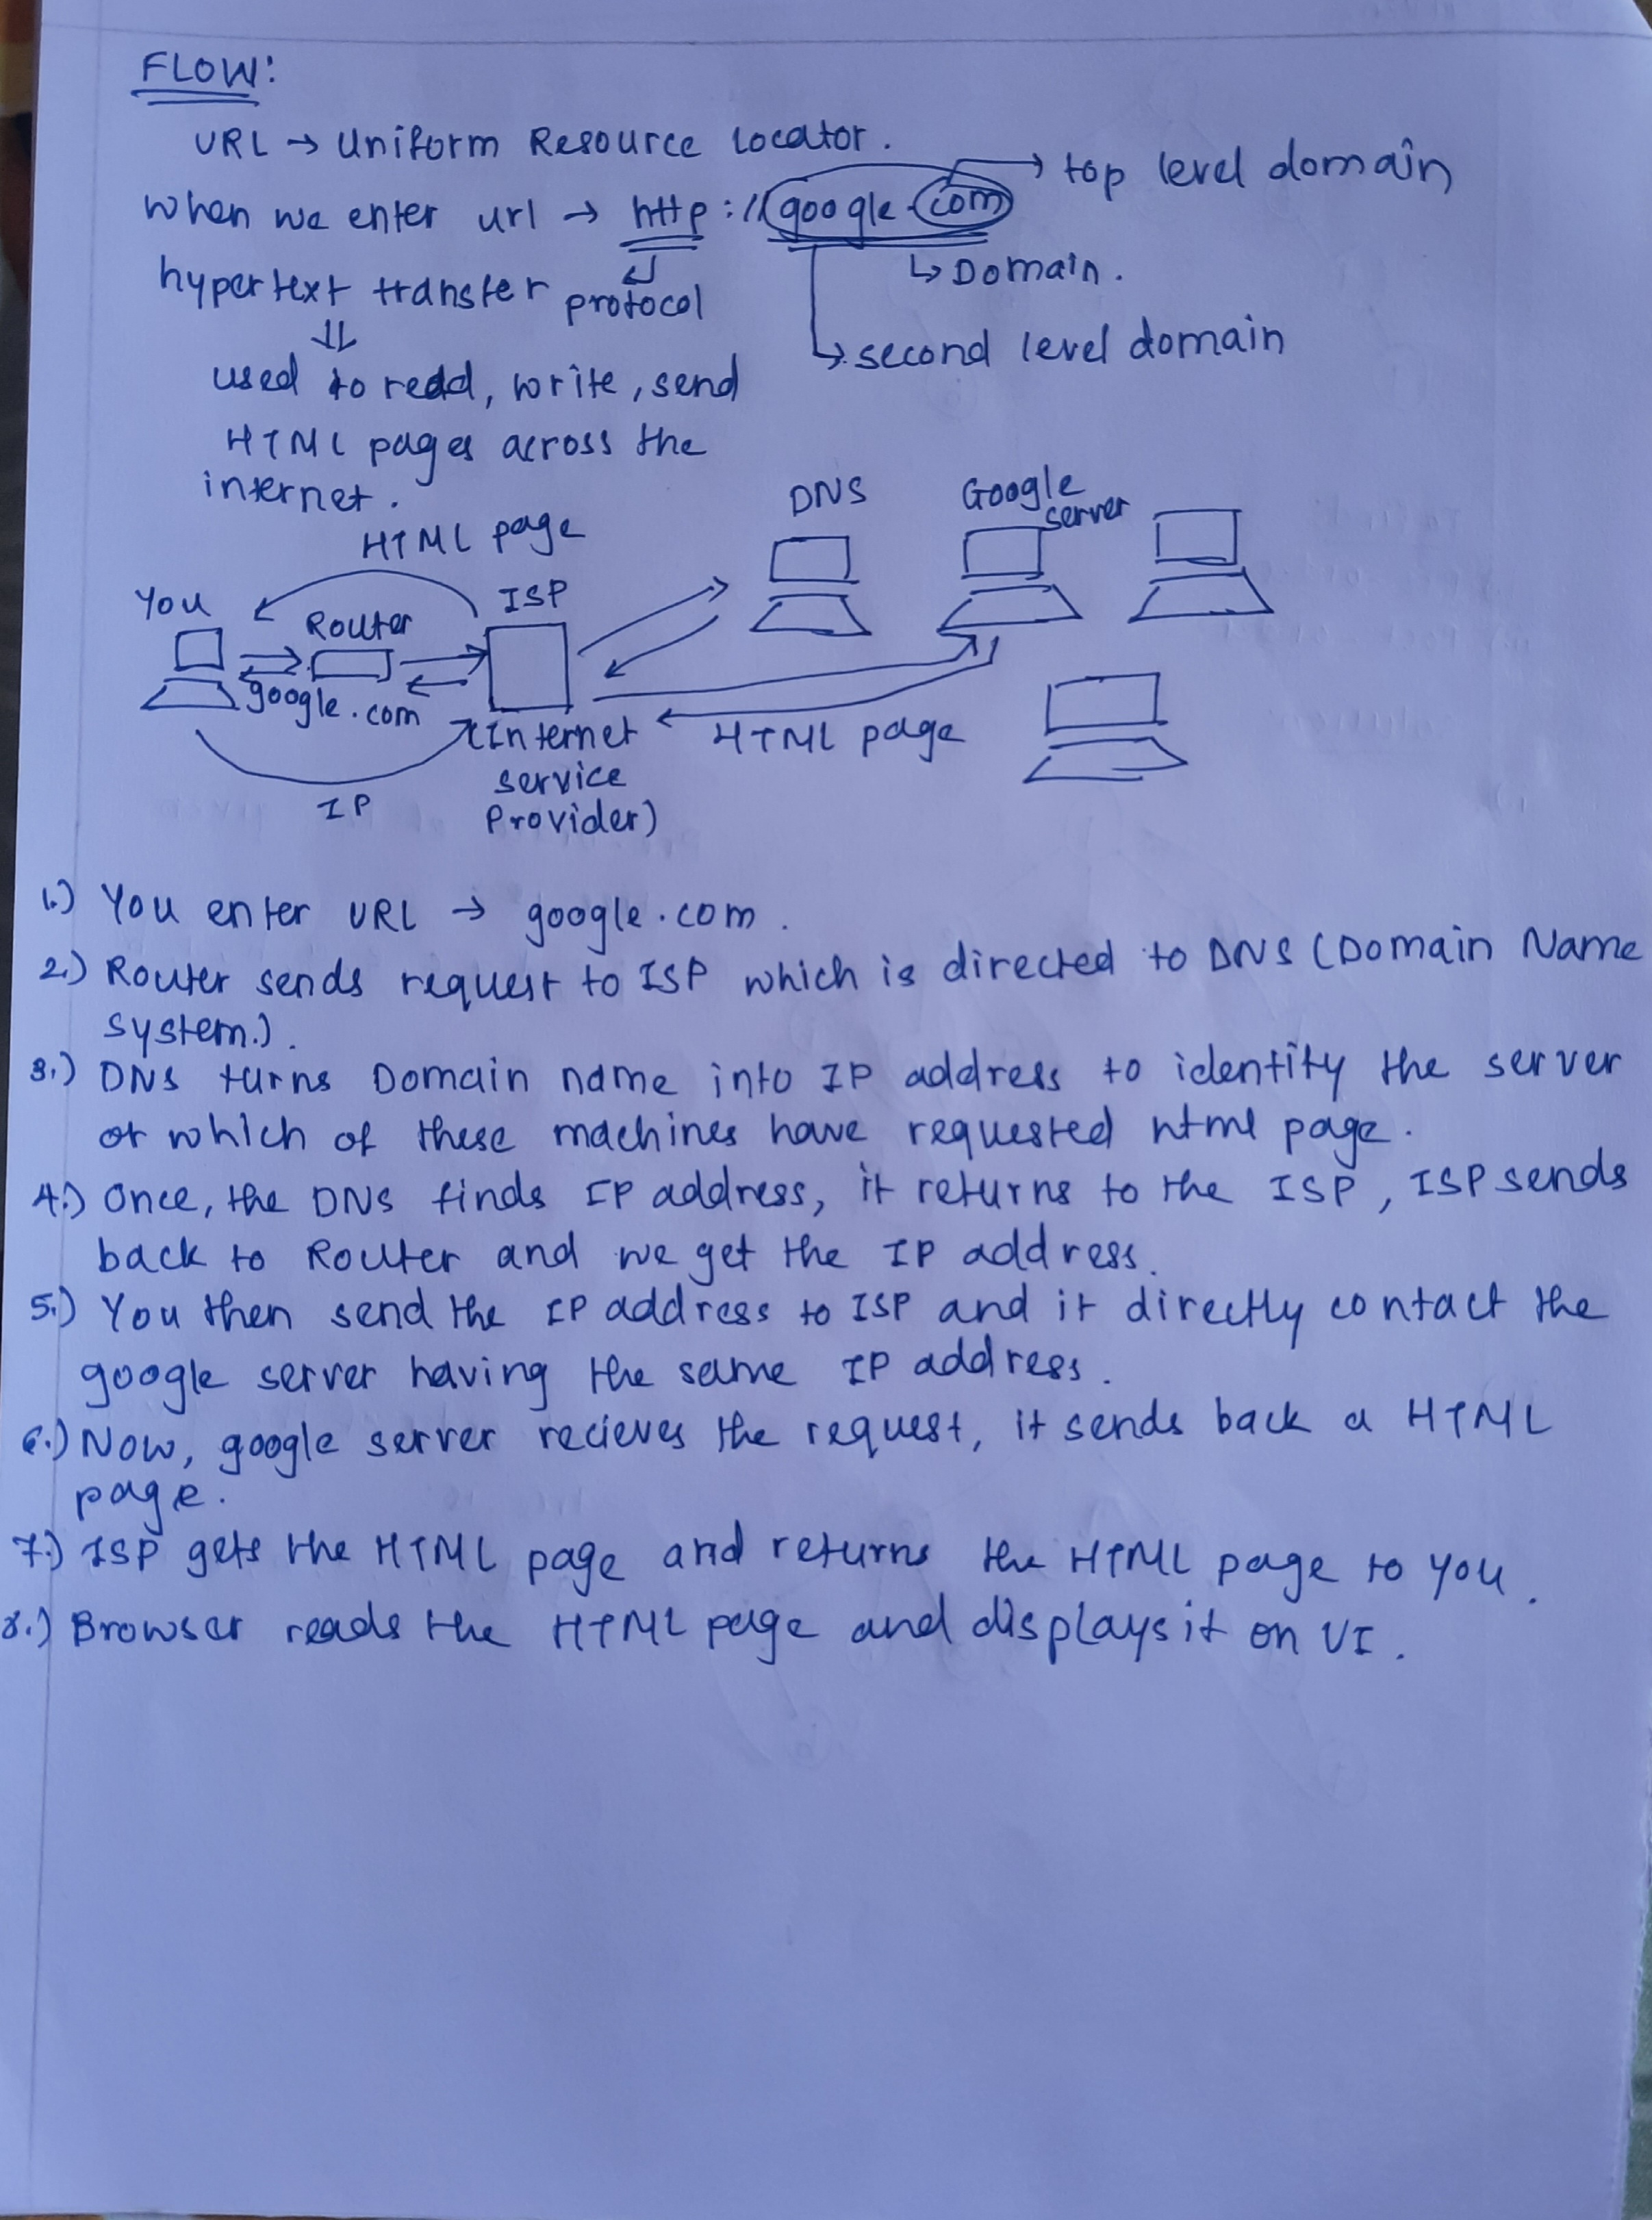 FLOW:
URL → Uniform Resource Locator.
when we enter url → http://google.com → top level domain
hypertext transfer protocol
↳ Domain.
↳ second level domain
used to read, write, send
HTML pages across the
internet.
HTML page
DNS
Google
server
You
Router
ISP
google.com
(Internet
service
Provider)
HTML page
IP
1.) You enter URL → google.com.
2.) Router sends request to ISP which is directed to DNS (Domain Name
system.).
3.) DNS turns Domain name into IP address to identify the server
or which of these machines have requested html page.
4.) Once, the DNS finds IP address, it returns to the ISP, ISP sends
back to Router and we get the IP address.
5.) You then send the IP address to ISP and it directly contact the
google server having the same IP address.
6.) Now, google server recieves the request, it sends back a HTML
page.
7.) ISP gets the HTML page and returns the HTML page to you.
8.) Browser reads the HTML page and displays it on UI.